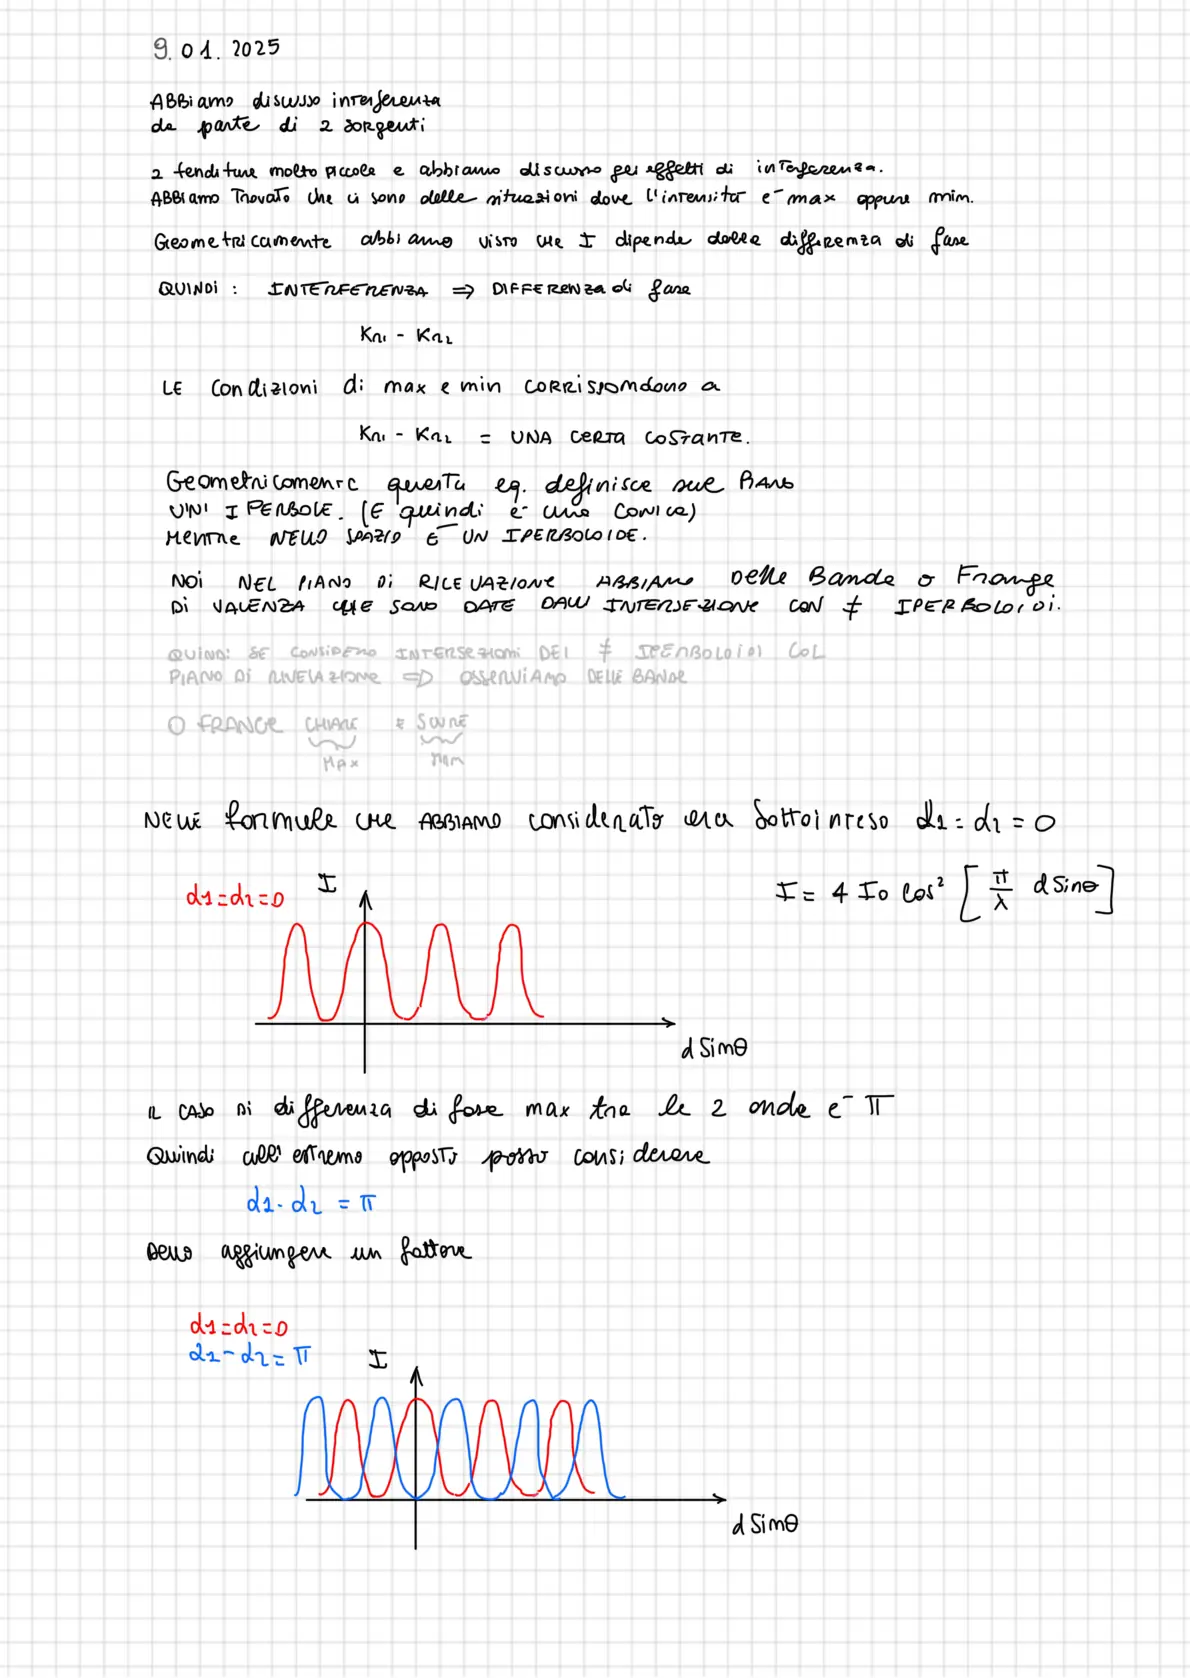 9.01.2025
ABBiamo discusso interferenza
da parte di 2 sorgenti
2 fenditure molto piccole e abbiamo discusso gli effetti di interferenza.
ABBiamo Trovato che ci sono delle situazioni dove l'intensità è max oppure min.
Geometricamente abbiamo visto che I dipende dalla differenza di fase
QUINDI : INTERFERENZA ⇒ DIFFERENZA di fase
Kr₁ - Kr₂
LE Condizioni di max e min CORRISPONDONO a
Kr₁ - Kr₂ = UNA CERTA COSTANTE.
Geometricamente questa eq. definisce sul PIANO
UN' IPERBOLE. (E quindi è una CONICA)
MENTRE NELLO SPAZIO È UN IPERBOLOIDE.
NOI NEL PIANO Di RILEVAZIONE ABBIAMO Delle Bande o Frange
Di VALENZA CHE SONO DATE DALL'INTERSEZIONE CON ≠ IPERBOLOIDI.
QUINDI SE CONSIDERO INTERSEZIONI DEI ≠ IPERBOLOIDI COL
PIANO DI RIVELAZIONE ⇒ OSSERVIAMO DELLE BANDE
O FRANGE CHIARE e SCURE
MAX min
NELLE formule che ABBIAMO considerato era Sottointeso α₁ = α₂ = 0
α₁=α₂=0 I I = 4 I₀ cos² [π/λ d sinθ]
d sinθ
IL CASO Di differenza di fase max tra le 2 onde è π
Quindi all'estremo opposto posso considerare
α₁ - α₂ = π
Devo aggiungere un fattore
α₁=α₂=0
α₁-α₂=π I
d sinθ